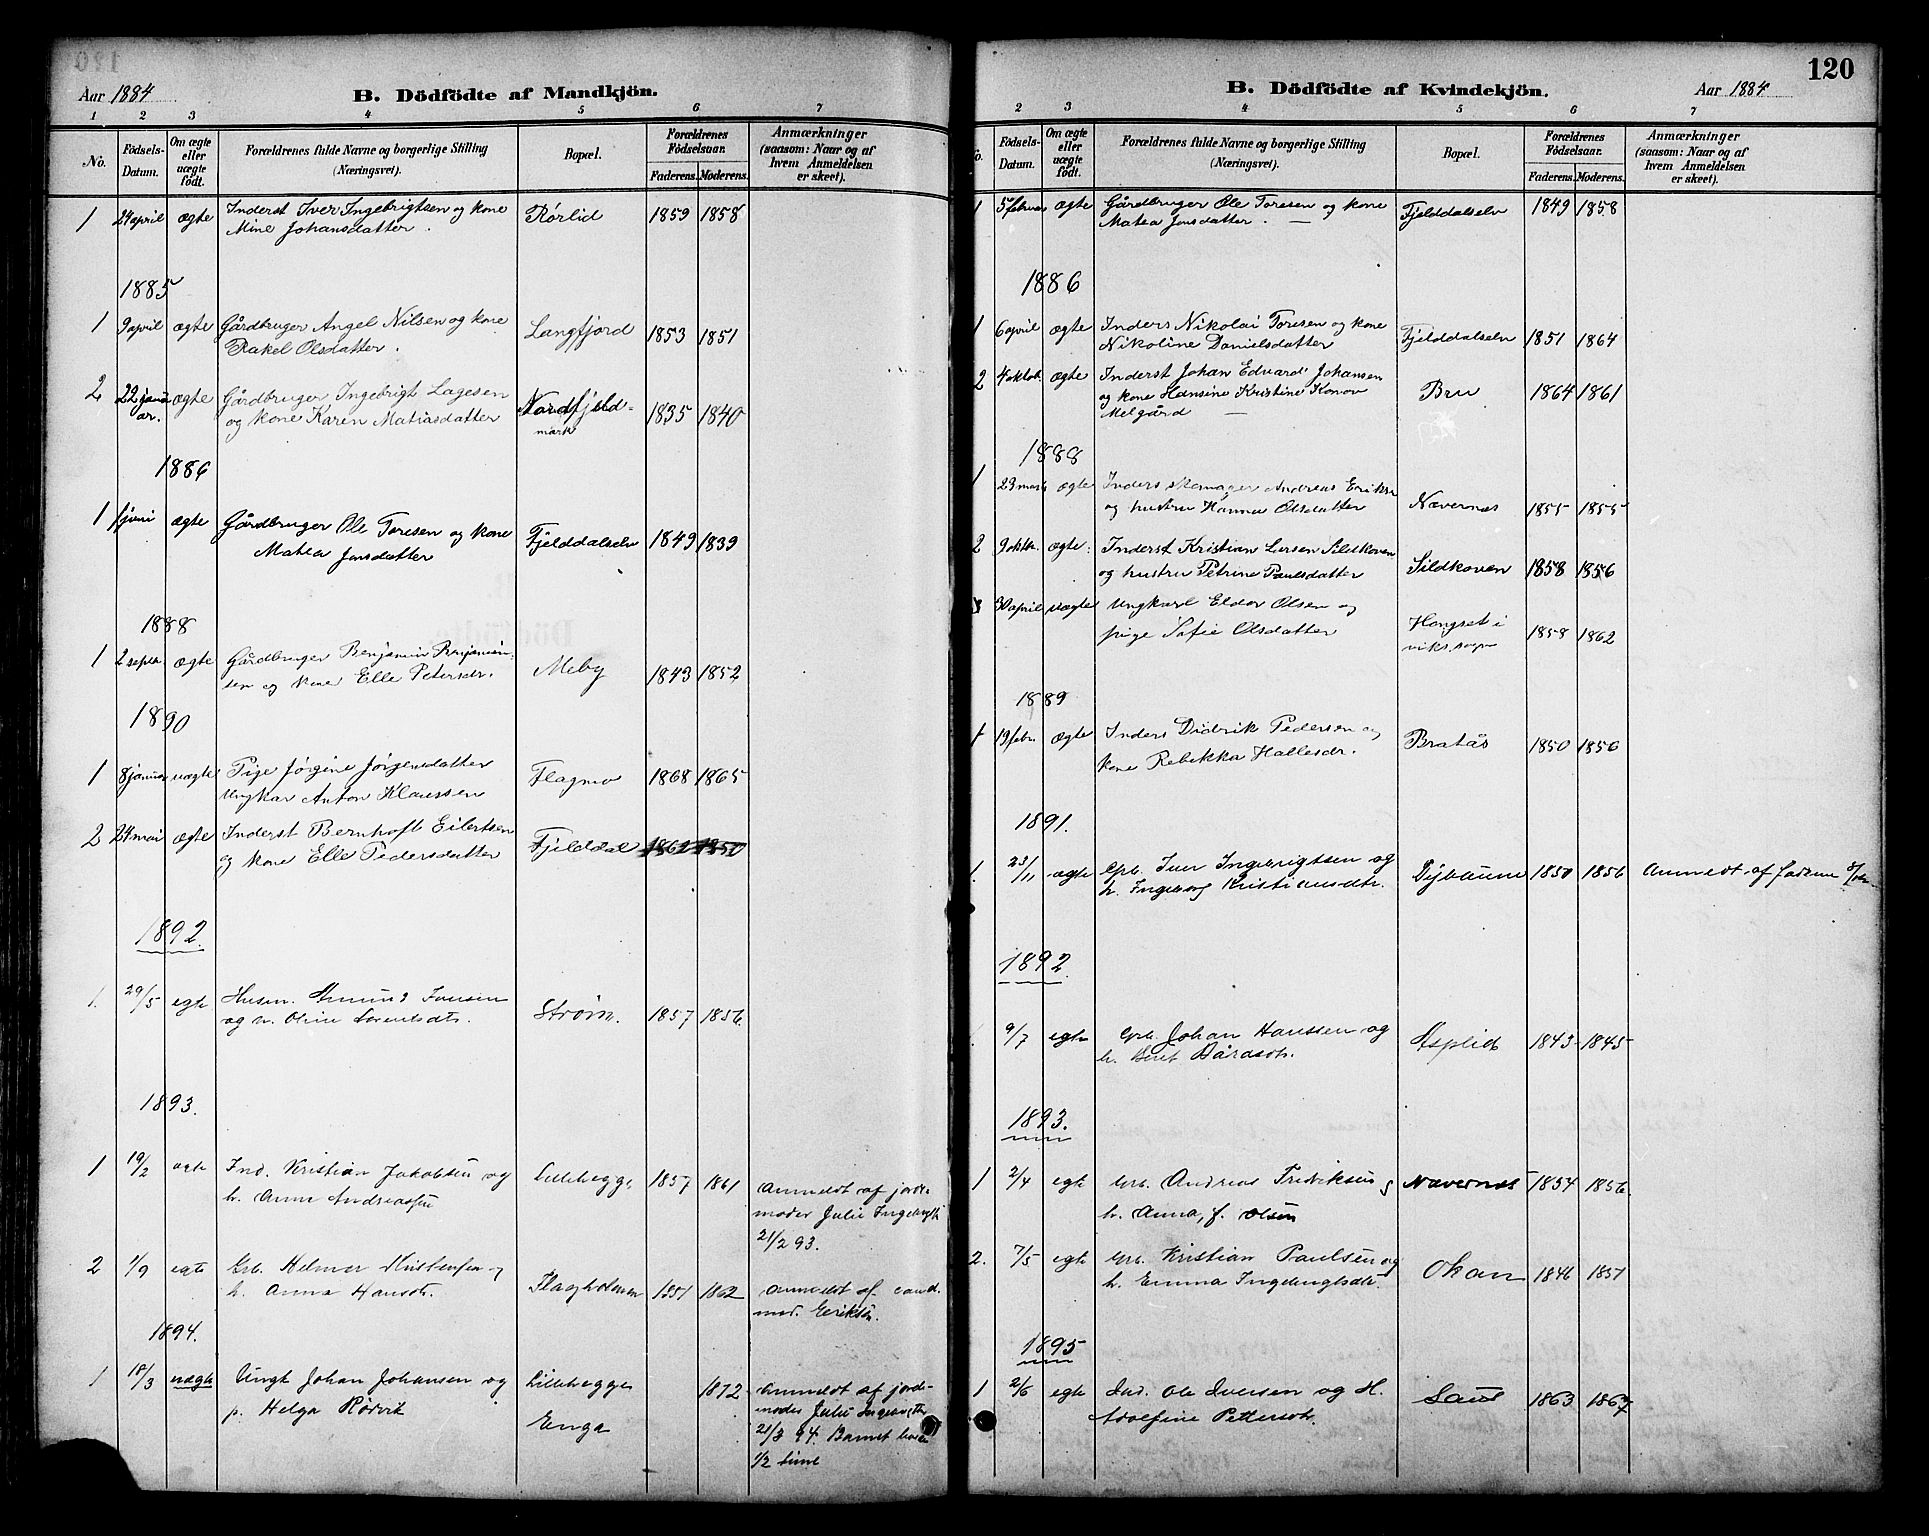 Aar 1884
B. Dödfödte af Mandkjön.
1 2 3 4 5 6 7
No.
Födsels-Datum.
Om ægte eller uægte födt.
Forældrenes fulde Navne og borgerlige Stilling (Næringsvei).
Bopæl.
Forældrenes Födselsaar.
Faderens. Moderens.
Anmærkninger (saasom: Naar og af hvem Anmeldelsen er skeet).
1 24 april ægte Inderst Iver Ingebrigtsen og kone Rörlid 1859 1858
Mine Johansdatter.
1885
1 9 april ægte Gårdbruger Angel Nilsen og kone Langfjord 1853 1851
Rakel Olsdatter.
2 22 januar. ægte Gårdbruger Ingebrigt Lagesen Nordfjeld- 1835 1840
og kone Karen Matiasdatter mark
1886
1 juni ægte Gårdbruger Ole Toresen og kone Fjelddalselv 1849 1839
Matea Jonsdatter
1888
1 2 septbr. ægte Gårdbruger Benjamin Benjamin- Meby 1843 1852
sen og kone Elle Petersdr.
1890
1 8 januar uægte Pige Jörgine Jörgensdatter Flagmo 1868 1865
Ungkar Anton Klaussen
2 24 mai ægte Inderst Bernhoft Eilertsen Fjelddal 1862 1850
og kone Elle Pedersdatter
1892.
1. 29/5 egte Husm. Amund Jonsen Ström. 1857 1856.
og h. Oline Lorentsdtr.
1893.
1 19/2 egte Ind. Kristian Jakobsen og Lillehegge 1857 1861 Anmeldt af jorde-
h. Anna Andreassen moder Julie Ingebrigts
21/2 93.
2 1/9 egte Grb. Helmer Kristensen og Flagholmen 1851 1862 Anmeldt af cand.
h. Anna Hansdtr. med. Eriksen.
1894.
1 18/3 uægte Ungk Johan Johansen og Lillehegge 1872 Anmeldt af jord-
p. Helga Rörvik Enga moder Julie
21/3 94. Barnet
1/2 time
120
B. Dödfödte af Kvindekjön.
Aar 1884
2 3 4 5 6 7
Födsels-Datum.
Om ægte eller uægte födt.
Forældrenes fulde Navne og borgerlige Stilling (Næringsvei).
Bopæl.
Forældrenes Födselsaar.
Faderens. Moderens.
Anmærkninger (saasom: Naar og af hvem Anmeldelsen er skeet).
1 5 februar ægte Gårdbruger Ole Toresen og kone Fjelddalselv 1849 1858
Matea Jonsdatter. —
1886
1 6 april ægte Inders Nikolai Toresen og kone Fjelddalselv 1851 1864
Nikoline Danielsdatter
2 4 oktob. ægte Inderst Johan Edvard Johansen Bru 1864 1861
og kone Hansine Kristine Konov
Melgård —
1888
1 23 mars ægte Inders skomager Andreas Eriksn Nævernæs 1855 1855
og hustru Hanna Olsdatter
2 9 oktbr. ægte Inderst Kristian Larsen Sildkoven Sildkoven 1858 1856
og hustru Petrine Paulsdatter
3 30 april uægte Ungkarl Eldor Olsen og Hongset i 1858 1862
pige Sofie Olsdatter viks sogn
1889
1 19 febr. ægte Inders Didrik Pedersen og Bratås 1850 1850
kone Rebekka Hallesdr.
1891.
1. 23/11 ægte Grb. Iver Ingebrigtsen og Dypaune 1850 1856 Anmeldt af faderen
h. Ingeborg Kristiansdtr.
1892.
9/7 egte Grb. Johan Hanssen og Asplid 1843 1845
h. Beret Bårdsdtr.
1893.
1 2/4 egte Grb. Andreas Fredriksen og Nævernæs 1854 1856.
h. Anna, f. Olsen
2. 7/5 egte Grb. Kristian Paulsen og Okan 1846 1857
h. Emma Ingebrigtsdtr
1895
1 2/6 egte Ind. Ole Iversen og H. Saus 1863 1867
Adolfine Pettersdtr.